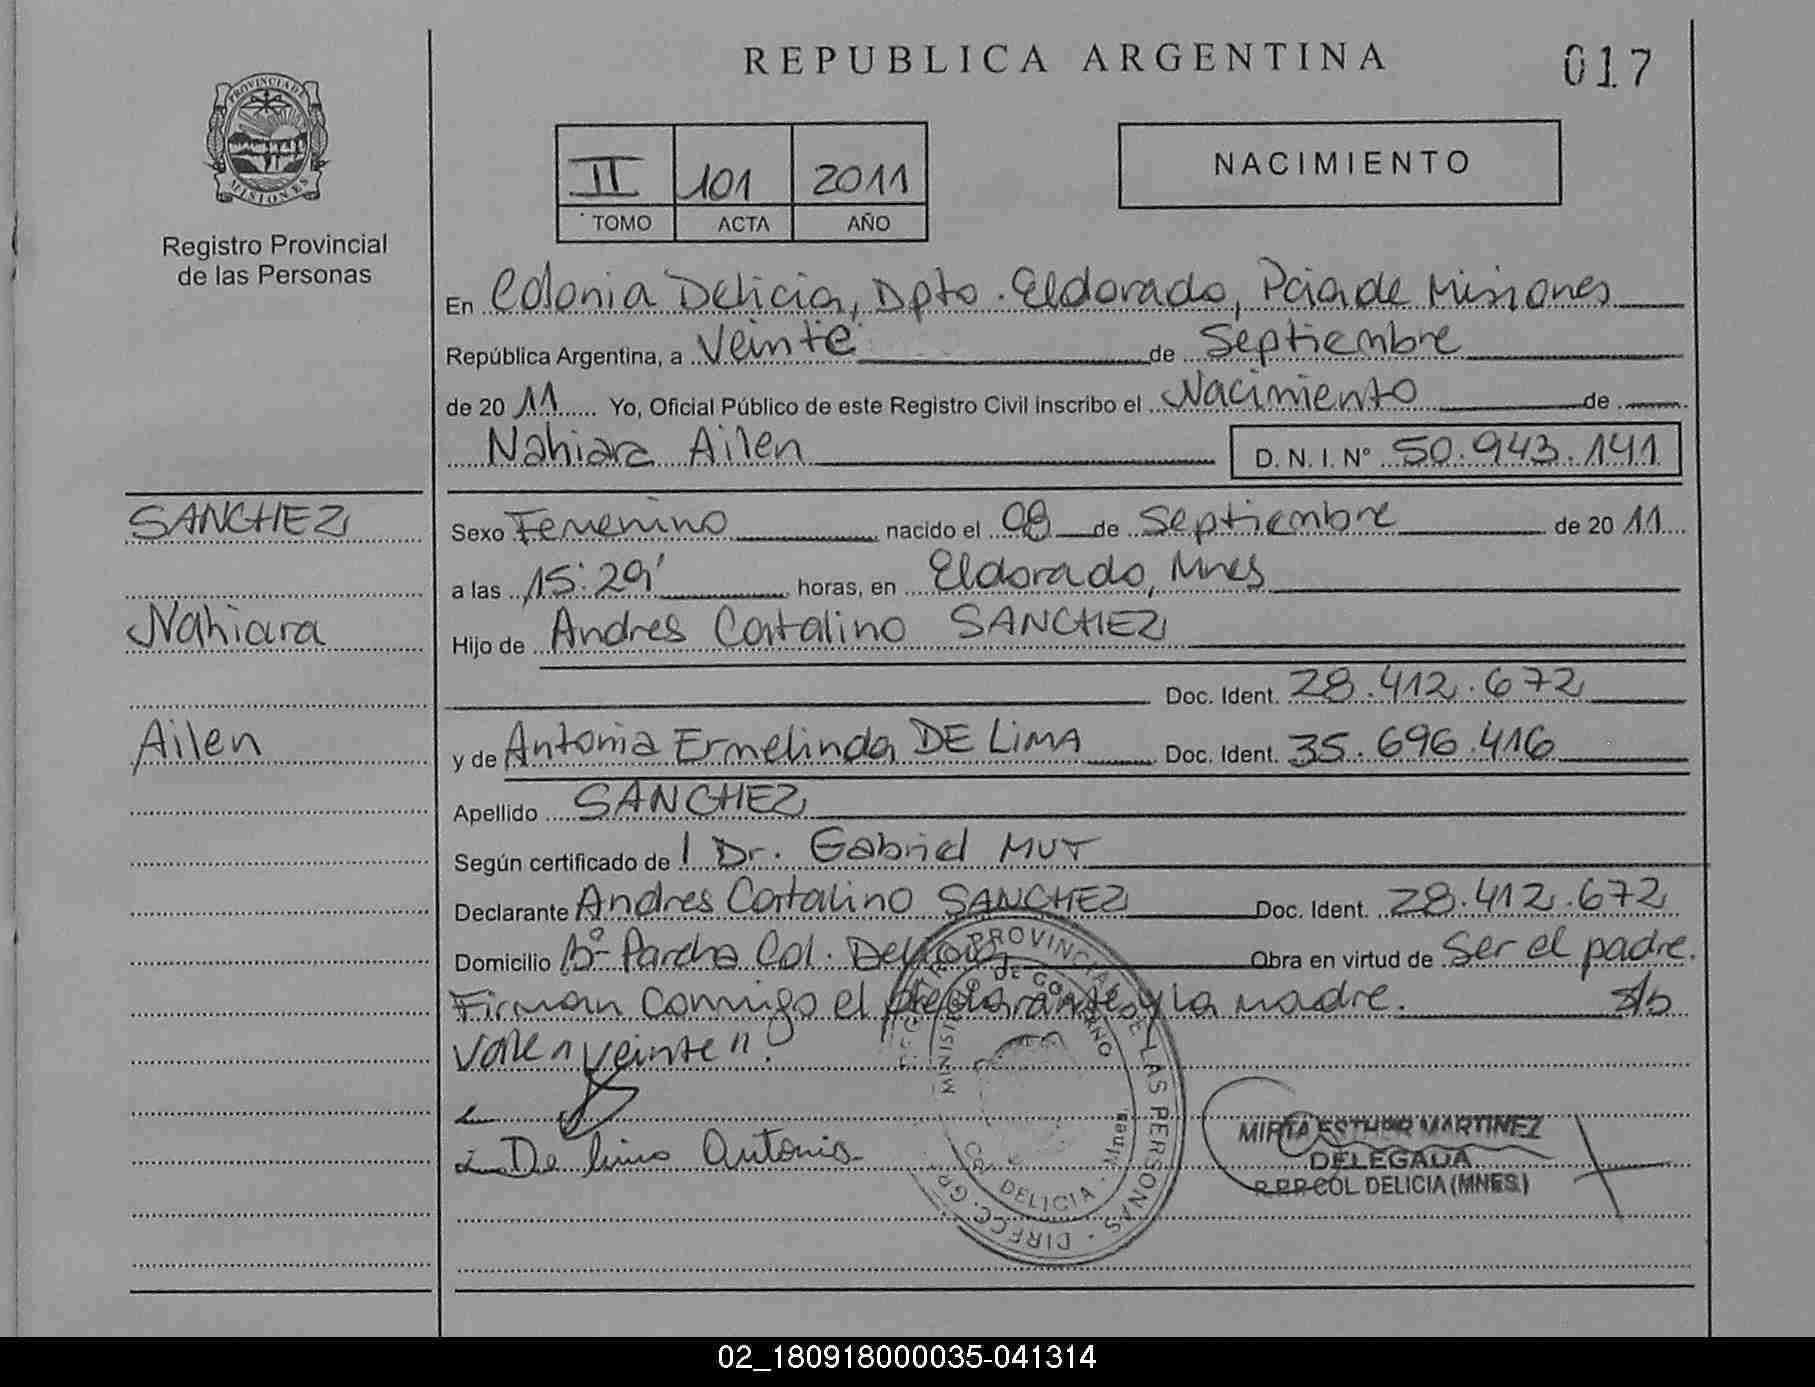 REPUBLICA ARGENTINA
017
PROVINCIA DE MISIONES
Registro Provincial
de las Personas
II 101 2011
TOMO ACTA AÑO
NACIMIENTO
En Colonia Delicia, Dpto. Eldorado, Pcia de Misiones
República Argentina, a Veinte de Septiembre
de 2011 Yo, Oficial Público de este Registro Civil inscribo el Nacimiento de
Nahiara Ailen D. N. I. N° 50.943.141
SANCHEZ
Nahiara
Ailen
Sexo Femenino nacido el 08 de Septiembre de 2011
a las 15:29' horas, en Eldorado, Mnes
Hijo de Andres Catalino SANCHEZ
Doc. Ident. 28.412.672
y de Antonia Ermelinda DE LIMA Doc. Ident. 35.696.416
Apellido SANCHEZ
Según certificado de Dr. Gabriel MUT
Declarante Andres Catalino SANCHEZ Doc. Ident. 28.412.672
Domicilio B° Parcha Col. Delicia Obra en virtud de Ser el padre.
Firman conmigo el declarante y la madre. s/b
Vale "veinte".
De lima Antonia
PROVINCIAL DE LAS PERSONAS
MINISTERIO DE GOBIERNO
DELICIA - Mnes.
MIRTA ESTHER MARTINEZ
DELEGADA
R.P.P COL DELICIA (MNES)
02_180918000035-041314